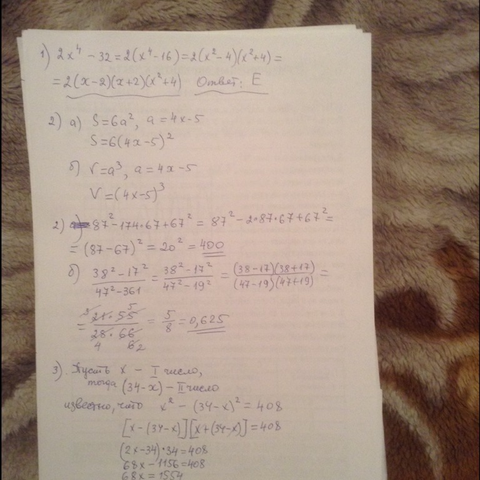 1) 2x⁴ - 32 = 2(x⁴-16) = 2(x²-4)(x²+4) =
= 2(x-2)(x+2)(x²+4) Ответ: E
2) а) S=6a², a=4x-5
S=6(4x-5)²
б) V=a³, a=4x-5
V=(4x-5)³
2) 87²-174*67+67² = 87²-2*87*67+67² =
= (87-67)² = 20² = 400
б) (38²-17²)/(47²-361) = (38²-17²)/(47²-19²) = ((38-17)(38+17))/((47-19)(47+19)) =
= (21·55)/(28·66) = 5/8 = 0,625
3) Пусть x - I число,
тогда (34-x) - II число
известно, что x² - (34-x)² = 408
[x-(34-x)][x+(34-x)] = 408
(2x-34)*34=408
68x-1156=408
68x=1554